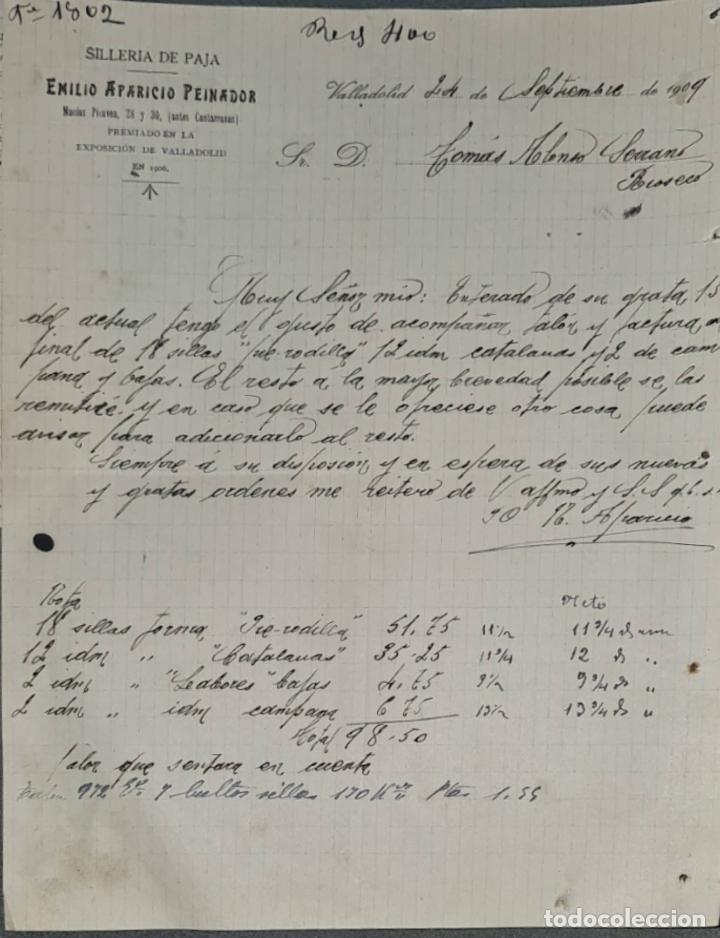 SILLERIA DE PAJA
EMILIO APARICIO PEINADOR
Macías Picavea, 28 y 30, (antes Cantarranas)
PREMIADO EN LA
EXPOSICIÓN DE VALLADOLID
EN 1906.
Valladolid 24 de Septiembre de 1909
Sr. D. Tomás Alonso Serrano
Rioseco
Muy Señor mio: Enterado de su grata 15
del actual tengo el gusto de acompañar talón y factura
final de 18 sillas "pre-rodilla" 12 idm catalanas y 2 de cam
pana y bajas. El resto á la mayor brevedad posible se las
remitiré y en caso que se le ofreciese otro cosa puede
avisar para adicionarlo al resto.
Siempre á su disposión y en espera de sus nuevas
y gratas ordenes me reitero de V affmo y S. S q. b. s.
Aparicio
Nota
18 sillas forma "Pre-rodilla" 51.75 11 1/2 11 3/4
12 idm " "Catalanas" 35.25 11 3/4 12
2 idm " "Labores" bajas 4.75 9 1/2 9 3/4
2 idm " idm campana 6 75 13 1/2 13 3/4
Total 98.50
Valor que sentara en cuenta
972 7 bultos sillas 170 Ptas 1.55
todocoleccion